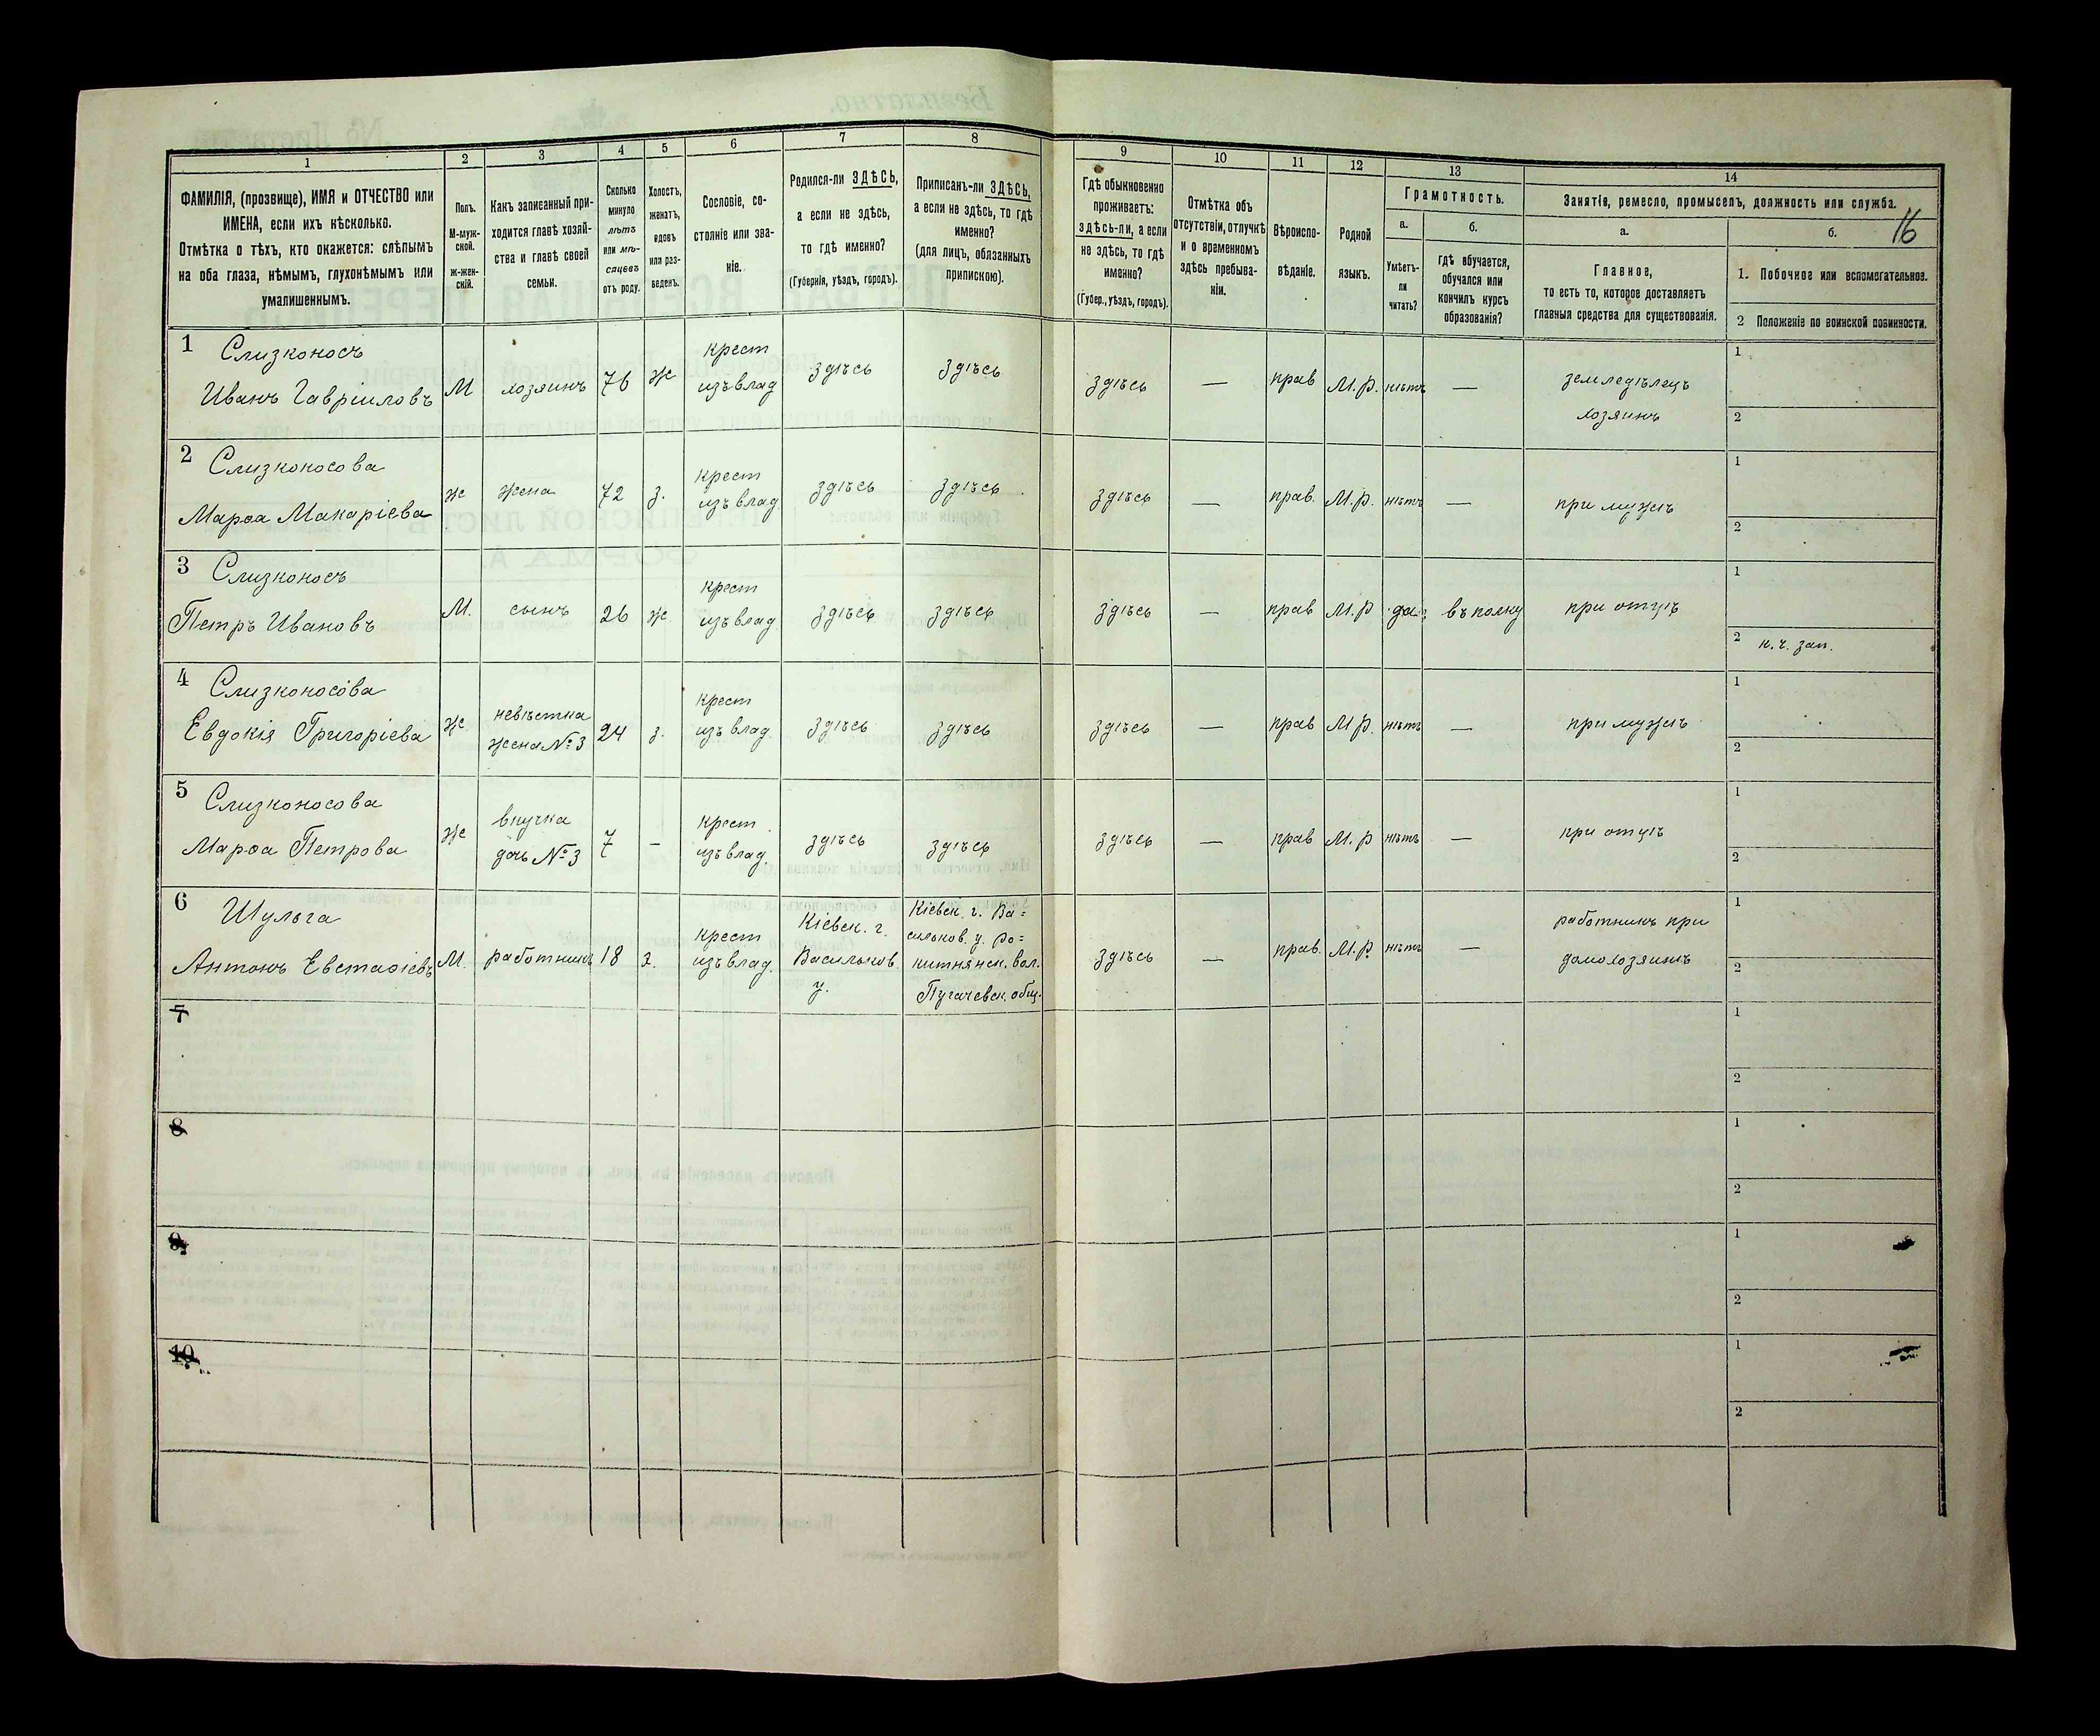 16
1
2
3
4
5
6
7
8
9
10
11
12
13
14
ФАМИЛІЯ, (прозвище), ИМЯ и ОТЧЕСТВО или
ИМЕНА, если ихъ нѣсколько.
Отмѣтка о тѣхъ, кто окажется: слѣпымъ
на оба глаза, нѣмымъ, глухонѣмымъ или
умалишеннымъ.
Полъ.
М-муж-
ской.
ж-жен-
скій.
Какъ записанный при-
ходится главѣ хозяй-
ства и главѣ своей
семьи.
Сколько
минуло
лѣтъ
или мѣ-
сяцевъ
отъ роду.
Холостъ,
женатъ,
вдовъ
или раз-
веденъ.
Сословіе, со-
стояніе или зва-
ніе.
Родился-ли ЗДѢСЬ,
а если не здѣсь,
то гдѣ именно?
(Губернія, уѣздъ, городъ).
Приписанъ-ли ЗДѢСЬ,
а если не здѣсь, то гдѣ
именно?
(для лицъ, обязанныхъ
припискою).
Гдѣ обыкновенно
проживаетъ:
здѣсь-ли, а если
не здѣсь, то гдѣ
именно?
(Губер., уѣздъ, городъ).
Отмѣтка объ
отсутствіи, отлучкѣ
и о временномъ
здѣсь пребыва-
ніи.
Вѣроиспо-
вѣданіе.
Родной
языкъ.
Грамотность.
а.
Умѣетъ-
ли
читать?
б.
гдѣ обучается,
обучался или
кончилъ курсъ
образованія?
Занятіе, ремесло, промыселъ, должность или служба.
а.
Главное,
то есть то, которое доставляетъ
главныя средства для существованія.
б.
1. Побочное или вспомогательное.
2 Положеніе по воинской повинности.
1 Слизконосъ
Иванъ Гавріиловъ М хозяинъ 76 ж крест
изъ влад здѣсь здѣсь здѣсь — прав М.р. нѣтъ — земледѣлецъ
хозяинъ 1
2
2 Слизконосова
Марѳа Макаріева ж жена 72 з. крест
изъ влад. здѣсь здѣсь здѣсь — прав. М.р. нѣтъ — при мужѣ 1
2
3 Слизконосъ
Петръ Ивановъ М. сынъ 26 ж. крест
изъ влад здѣсь здѣсь здѣсь — прав М.р да въ полку при отцѣ 1
2 н.ч. зап.
4 Слизконосова
Евдокія Григоріева ж невѣстка
жена № 3 24 з. крест
изъ влад. здѣсь здѣсь здѣсь — прав М р. нѣтъ — при мужѣ 1
2
5 Слизконосова
Марѳа Петрова ж внучка
дочь № 3 7 — крест
изъ влад. здѣсь здѣсь здѣсь — прав М.р нѣтъ — при отцѣ 1
2
6 Шульга
Антонъ Евстаѳіевъ М. работникъ 18 х. крест
изъ влад. Кіевск. г.
Васильков.
у. Кіевск. г. Ва=
сильков. у. Ро=
китнянск. вол.
Пугачевск. общ. здѣсь — прав. М.р. нѣтъ — работникъ при
домохозяинѣ 1
2
7
1
2
8
1
2
9
1
2
10
1
2